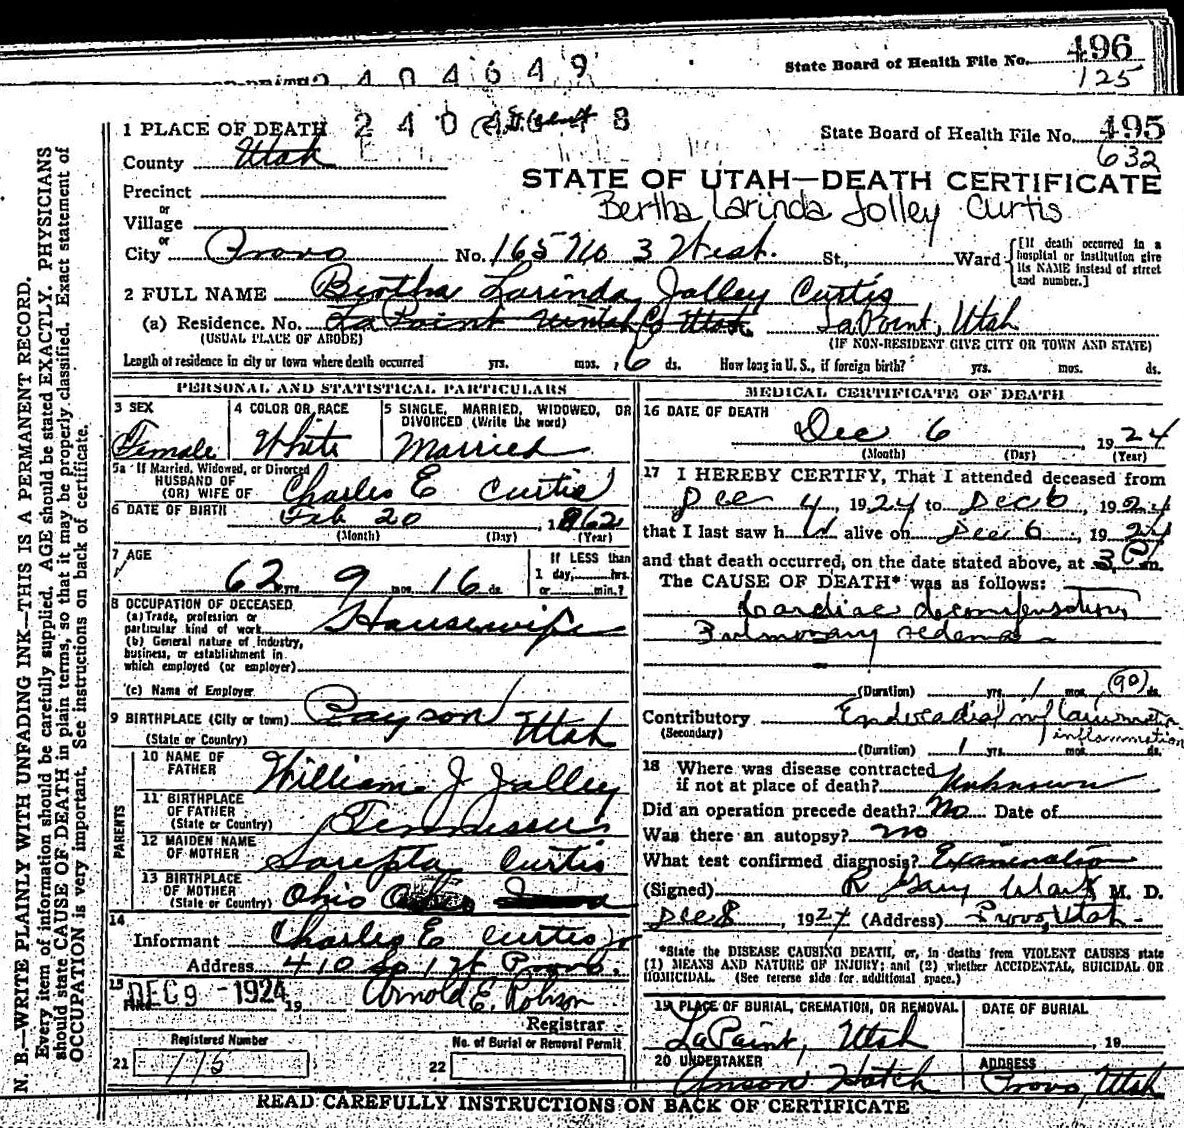 496
State Board of Health File No.
125
2 4 0 4 6 4 9
1 PLACE OF DEATH 2 4 0 4 8
State Board of Health File No. 495
632
County Utah
STATE OF UTAH—DEATH CERTIFICATE
Precinct
Bertha Larinda Jolley Curtis
or
Village
or
City Provo No. 165 No 3 West. St., Ward [If death occurred in a hospital or institution give its NAME instead of street and number.]
2 FULL NAME Bertha Larinda Jolley Curtis
(a) Residence. No. La Point Uintah Co Utah LaPoint, Utah
(USUAL PLACE OF ABODE) (IF NON-RESIDENT GIVE CITY OR TOWN AND STATE)
Length of residence in city or town where death occurred yrs. mos. 6 ds. How long in U. S., if foreign birth? yrs. mos. ds.
PERSONAL AND STATISTICAL PARTICULARS
3 SEX
Female
4 COLOR OR RACE
White
5 SINGLE, MARRIED, WIDOWED, OR DIVORCED (Write the word)
Married
5a If Married, Widowed, or Divorced
HUSBAND OF
(OR) WIFE OF Charles E Curtis
6 DATE OF BIRTH Feb 20, 1862
(Month) (Day) (Year)
7 AGE
62 yrs 9 mos. 16 ds.
If LESS than
1 day, hrs.
or min.?
8 OCCUPATION OF DECEASED
(a) Trade, profession or
particular kind of work Housewife
(b) General nature of industry,
business, or establishment in
which employed (or employer)
(c) Name of Employer
9 BIRTHPLACE (City or town) Payson Utah
(State or Country)
PARENTS
10 NAME OF
FATHER William J Jolley
11 BIRTHPLACE
OF FATHER
(State or Country) Tennessee
12 MAIDEN NAME
OF MOTHER Sarepta Curtis
13 BIRTHPLACE
OF MOTHER
(State or Country) Ohio
14
Informant Charles E Curtis Jr
Address 410 So 1st Provo.
15 DEC 9 - 1924 19 Arnold E. Robison
Filed
Registrar
Registered Number
21 175
No. of Burial or Removal Permit
22
MEDICAL CERTIFICATE OF DEATH
16 DATE OF DEATH
Dec 6, 1924
(Month) (Day) (Year)
17 I HEREBY CERTIFY, That I attended deceased from
Dec 4, 1924 to Dec 6, 1924
that I last saw h alive on Dec 6, 1924
and that death occurred, on the date stated above, at 3 P m.
The CAUSE OF DEATH* was as follows:
Cardiac decompensation
Pulmonary oedema
(Duration) yrs. 1 mos. (90) ds.
Contributory Endocardial inflammation
(Secondary) inflammation
(Duration) 1 yrs. mos. ds.
18 Where was disease contracted
if not at place of death? Unknown
Did an operation precede death? No Date of
Was there an autopsy? no
What test confirmed diagnosis? Examination
(Signed) R Gary Wark M. D.
Dec 8, 1924 (Address) Provo, Utah
*State the DISEASE CAUSING DEATH, or, in deaths from VIOLENT CAUSES state
(1) MEANS AND NATURE OF INJURY; and (2) whether ACCIDENTAL, SUICIDAL OR
HOMICIDAL. (See reverse side for additional space.)
19 PLACE OF BURIAL, CREMATION, OR REMOVAL
LaPoint, Utah
DATE OF BURIAL
, 19
20 UNDERTAKER
Anson Hatch
ADDRESS
Provo, Utah
READ CAREFULLY INSTRUCTIONS ON BACK OF CERTIFICATE
N. B.—WRITE PLAINLY WITH UNFADING INK—THIS IS A PERMANENT RECORD.
Every item of information should be carefully supplied. AGE should be stated EXACTLY. PHYSICIANS
should state CAUSE OF DEATH in plain terms, so that it may be properly classified. Exact statement of
OCCUPATION is very important. See instructions on back of certificate.